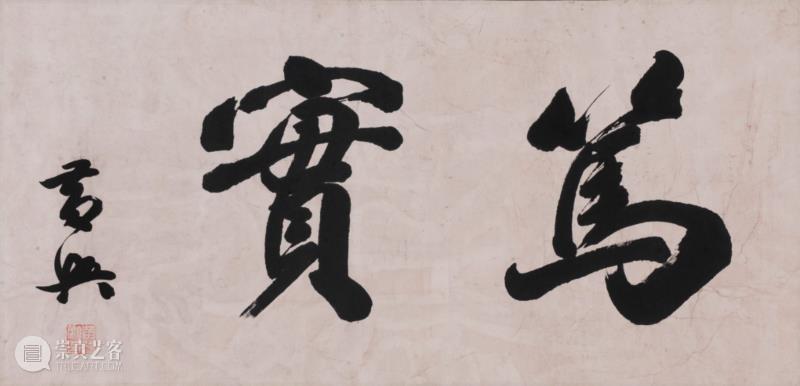 篤實
黄興
崇真艺客